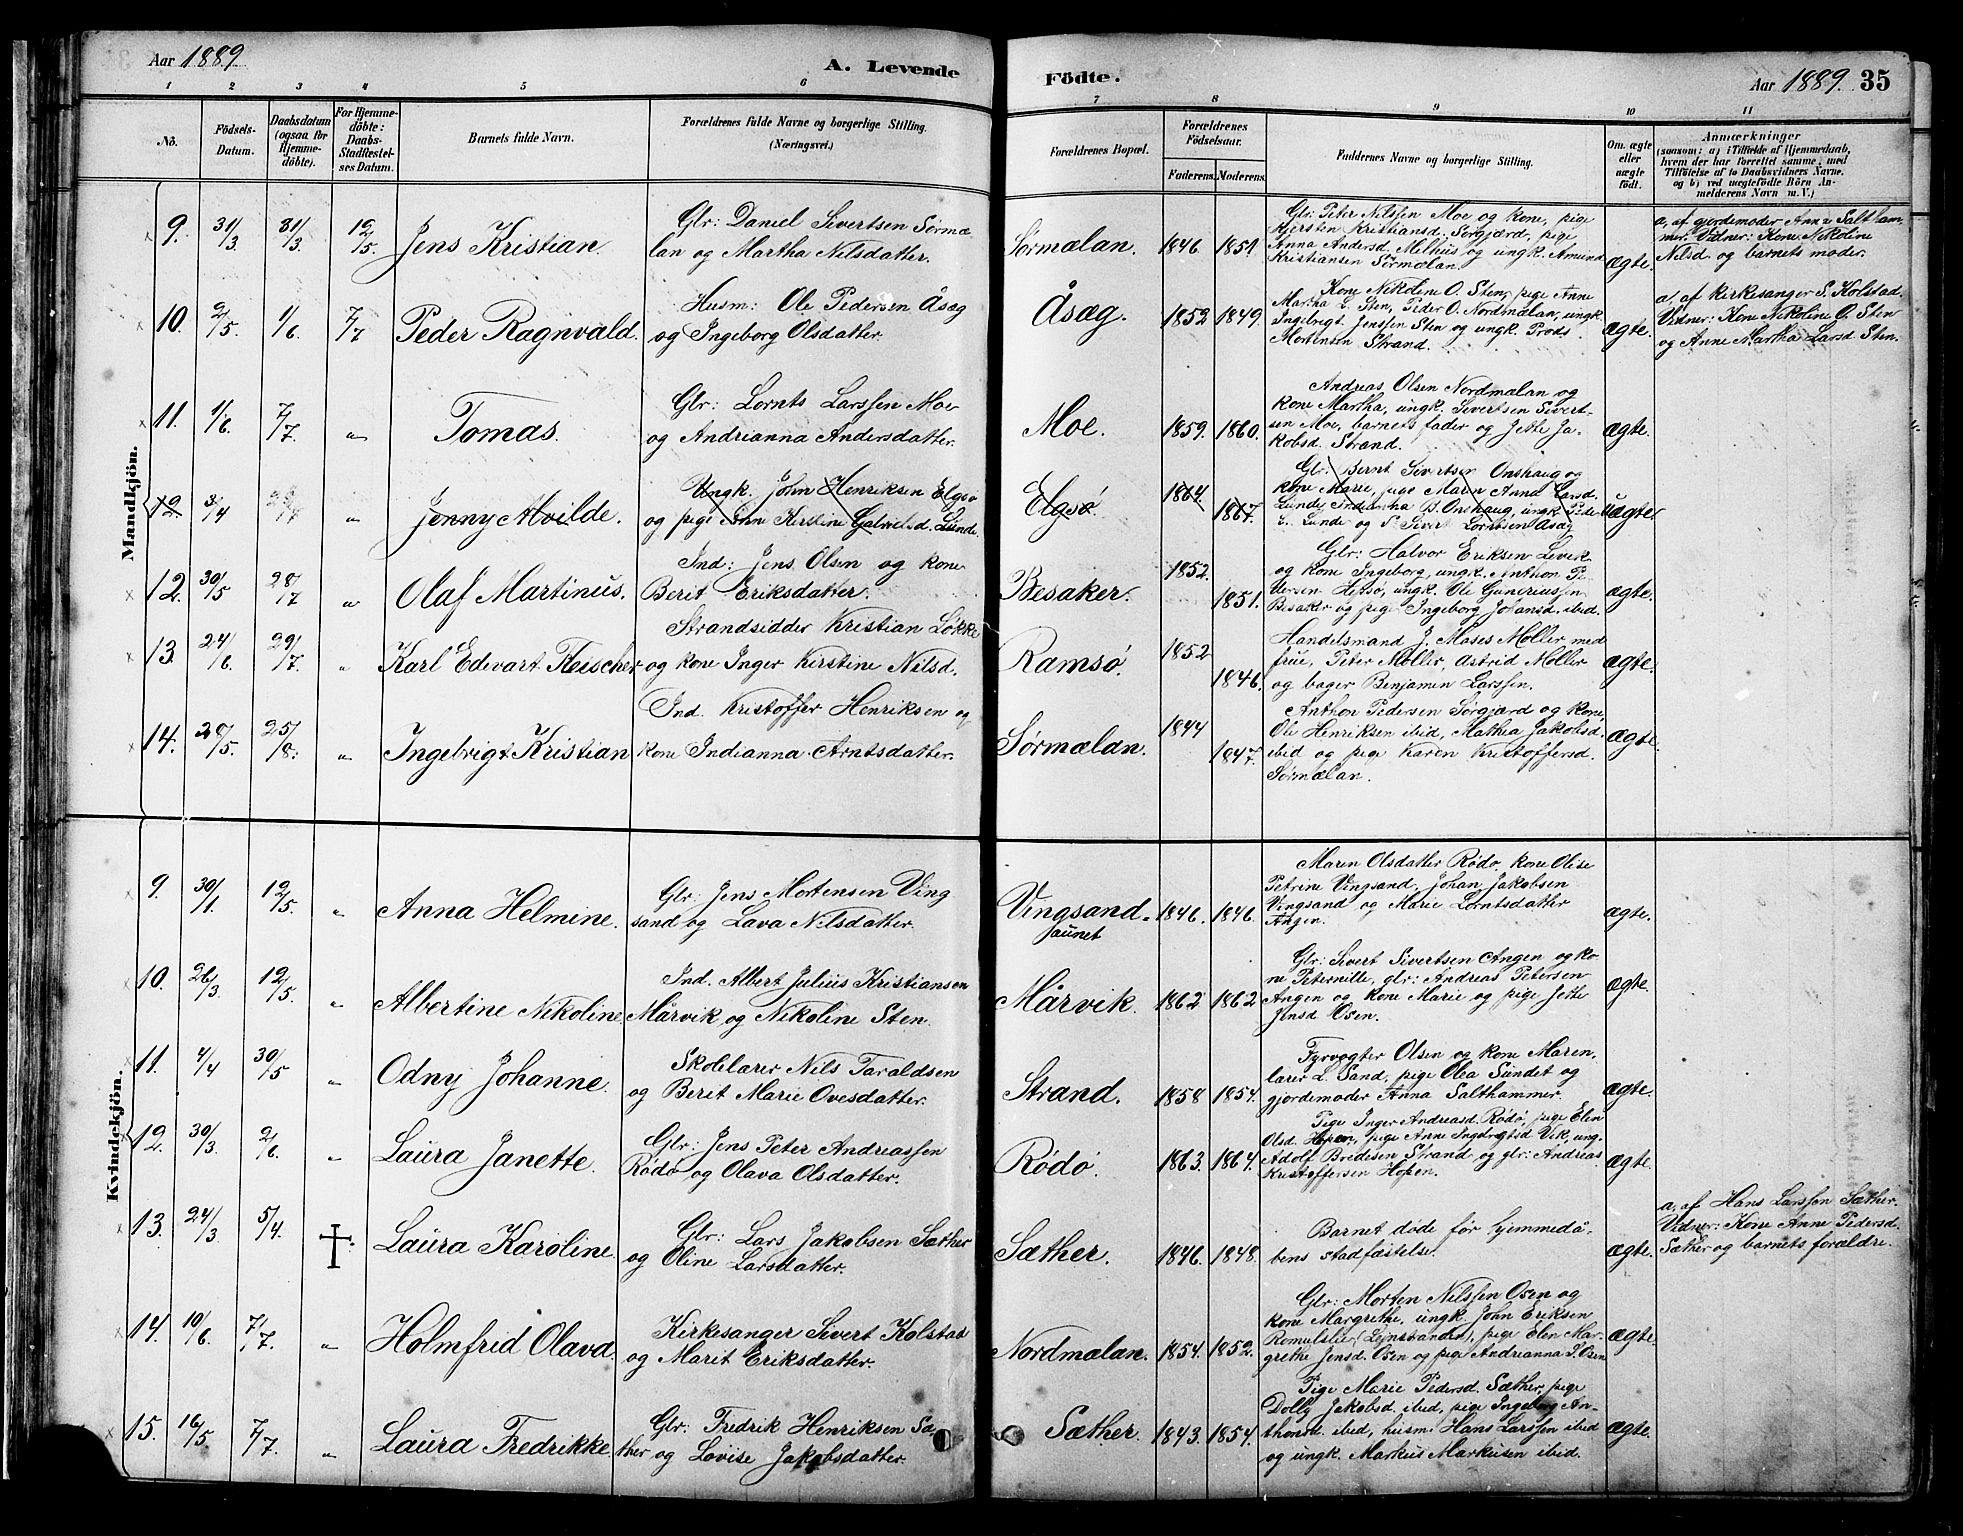 Aar 1889.
A. Levende
Födte.
Aar 1889. 35
1 2 3 4 5 6 7 8 9 10 11
No.
Födsels-
Datum.
Daabsdatum
(ogsaa for
Hjemme-
döbte).
For Hjemme-
döbte:
Daabs-
Stadfæstel-
ses Datum.
Barnets fulde Navn.
Forældrenes fulde Navne og borgerlige Stilling.
(Næringsvei.)
Forældrenes Bopæl.
Forældrenes
Födselsaar.
Faderens. Moderens.
Faddernes Navne og borgerlige Stilling.
Om ægte
eller
uægte
födt.
Anmærkninger
(saasom: a) i Tilfælde af Hjemmedaab,
hvem der har forrettet samme, med
Tilföielse af to Daabsvidners Navne.
og b) ved uægtefödte Börn An-
melderens Navn m. V.)
Mandkjön.
9. 31/3 31/3 12/5 Jens Kristian.
Glr: Daniel Sivertsen Sørmæ
lan og Martha Nilsdatter.
Sørmælan. 1846 1851
Glr: Peter Nilssen Moe og kone, pige
Kjersten Kristiansd. Sørgjærd, pige
Anna Andersd. Melhus og ungk. Amund
Kristiansen Sørmælan.
ægte.
a, af gjordemoder Anna Saltham-
mer. Vidner: Kone Nikoline
Nilsd. og barnets moder.
10. 2/5 1/6 7/7 Peder Ragnvald.
Husm: Ole Pedersen Åsæg
og Ingeborg Olsdatter.
Åsæg. 1852 1849.
Kone Nikoline O. Sten, pige Anne
Martha L. Sten, Peder O. Nordmælan, ungk.
Ingebrigt Jenssen Sten og ungk. Prods
Mortensen Strand.
ægte.
a, af kirkesanger S. Kolstad.
Vidner: Kone Nikoline O. Sten
og Anne Martha Larsd Sten.
11. 1/6 7/7 " Tomas.
Glr: Lornts Larssen Moe
og Andrianna Andersdatter.
Moe. 1859. 1860.
Andreas Olsen Nordmælan og
kone Martha, ungk. Sivertsen Sivert-
sen Moe, barnets fader og Jette Ja-
kobsd. Strand.
ægte.
12. 3/4 " Jenny Alvilde.
Ungk. John Henriksen Elgsø
og pige Ane Kirstine Gabrielsd. Lunde.
Elgsø. 1864 1867.
Glr: Bernt Sivertsen Onshaug og
kone Marie, pige Maren Anna Larsd.
Lunde, Indianna B. Onshaug, ungk. Peder
L. Lunde og S. Sivert Lorntsen Åsæg
uægte.
12. 30/5 28/7 " Olaf Martinus.
Ind: Jens Olsen og kone
Berit Eriksdatter.
Besaker. 1852. 1851.
Glr: Halvor Eriksen Levik
og kone Ingeborg, ungk. Anthon Pe-
dersen Hepsø, ungk. Ole Gunderiussen
Besaker og pige Ingeborg Johansd. ibid.
ægte.
13. 24/6 29/7 " Karl Edevart Fleischer
Strandsidder Kristian Løkke
og kone Inger Kirstine Nilsd.
Ramsø. 1852 1846.
Handelsmand J. Moses Møller med
frue, Peter Møller, Astrid Møller
og bager Benjamin Larssen.
ægte.
14. 28/5 25/8. " Ingebrigt Kristian
Ind. Kristoffer Henriksen og
kone Indianna Arntsdatter.
Sørmælan. 1844 1847.
Anthon Pedersen Sørgjærd og kone,
Ole Henriksen ibid, Mathea Jakobsd.
ibid og pige Karen Kristoffersd.
Sørmælan.
ægte.
Kvindekjön.
9. 30/1. 12/5. " Anna Helmine.
Glr. Jens Mortensen Ving
sand og Lava Nilsdatter.
Vingsand-
aunet
1846. 1846.
Maren Olsdatter Rødø, kone Olise
Petrine Vingsand, Johan Jakobsen
Vingsand og Marie Lorntsdatter
Angen.
ægte.
10. 26/3 12/5. " Albertine Nikoline.
Ind. Albert Julius Kristiansen
Mårvik og Nikoline Sten.
Mårvik. 1862 1862
Glr: Sivert Sivertsen Angen og ko-
ne Peternille, glr: Andreas Petersen
Angen og kone Marie og pige Jette
Jensd Osen.
ægte.
11. 4/4 30/5 " Odny Johanne.
Skolelærer Nils Taraldsen
og Berit Marie Ovesdatter.
Strand. 1858 1854.
Fyrvogter Olsen og kone Maren,
lærer L. Sand, pige Olea Sundet og
gjordemoder Anna Salthammer.
ægte.
12. 30/3 2/6 " Laura Janette.
Glr: Jens Peter Andreassen
Rødø og Olava Olsdatter.
Rødø. 1863. 1864.
Pige Inger Andreasd. Rødø, pige Elen
Olsd. Hopen, pige Anne Ingebrigtsd Vik, ung.
Adolf Bredesen Strand og glr: Andreas
Kristoffersen Hopen.
ægte.
13. 24/3 5/4 †. Laura Karoline
Glr: Lars Jakobsen Sæther
og Oline Larsdatter.
Sæther. 1846. 1848.
Barnet døde før hjemmedå-
bens stadfæstelse.
ægte.
a, af Hans Larssen Sæther.
Vidner: Kone Anne Pedersd.
Sæther og barnets forældre.
14. 10/6 7/7. " Holmfrid Olava.
Kirkesanger Sivert Kolstad
og Marit Eriksdatter.
Nordmælan. 1854. 1852.
Glr: Morten Nilssen Osen og
kone Margrethe, ungk. John Eriksen
Romulslie (Lejnstranden), pige Elen Mar-
grethe Jensd. Osen og pige Andrianna S. Osen
ægte.
15. 16/5 7/7. " Laura Fredrikke
Glr: Fredrik Henriksen Sæ
ther og Lovise Jakobsdatter.
Sæther. 1843. 1854.
Pige Marie Pedersd. Sæther, pige
Dolly Jakobsd ibid, pige Ingeborg An-
thonsd. ibid, husm. Hans Larssen ibid
og ungk. Markus Markusen ibid.
ægte.